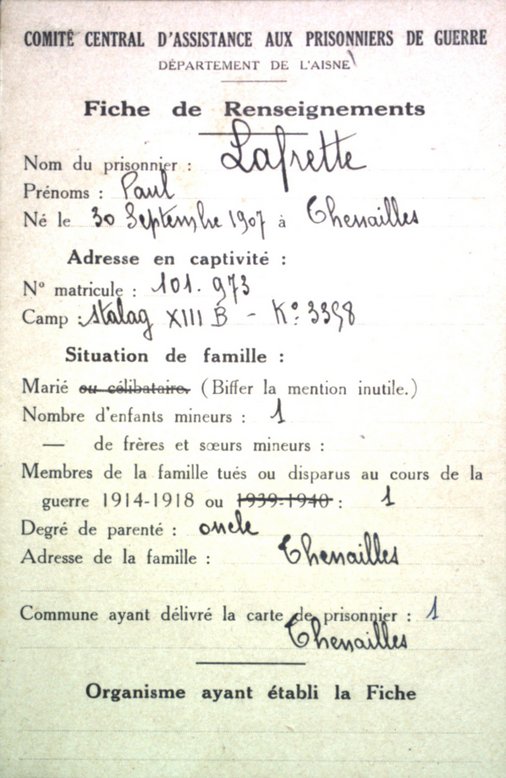 COMITÉ CENTRAL D'ASSISTANCE AUX PRISONNIERS DE GUERRE
DÉPARTEMENT DE L'AISNE
Fiche de Renseignements
Nom du prisonnier : Lafrette
Prénoms : Paul
Né le 30 Septembre 1907 à Thenailles
Adresse en captivité :
N° matricule : 101.973
Camp : Stalag XIII B - K° 3398
Situation de famille :
Marié ou célibataire. (Biffer la mention inutile.)
Nombre d'enfants mineurs : 1
— de frères et sœurs mineurs :
Membres de la famille tués ou disparus au cours de la
guerre 1914-1918 ou 1939-1940 : 1
Degré de parenté : oncle
Adresse de la famille : Thenailles
Commune ayant délivré la carte de prisonnier : 1
Thenailles
Organisme ayant établi la Fiche